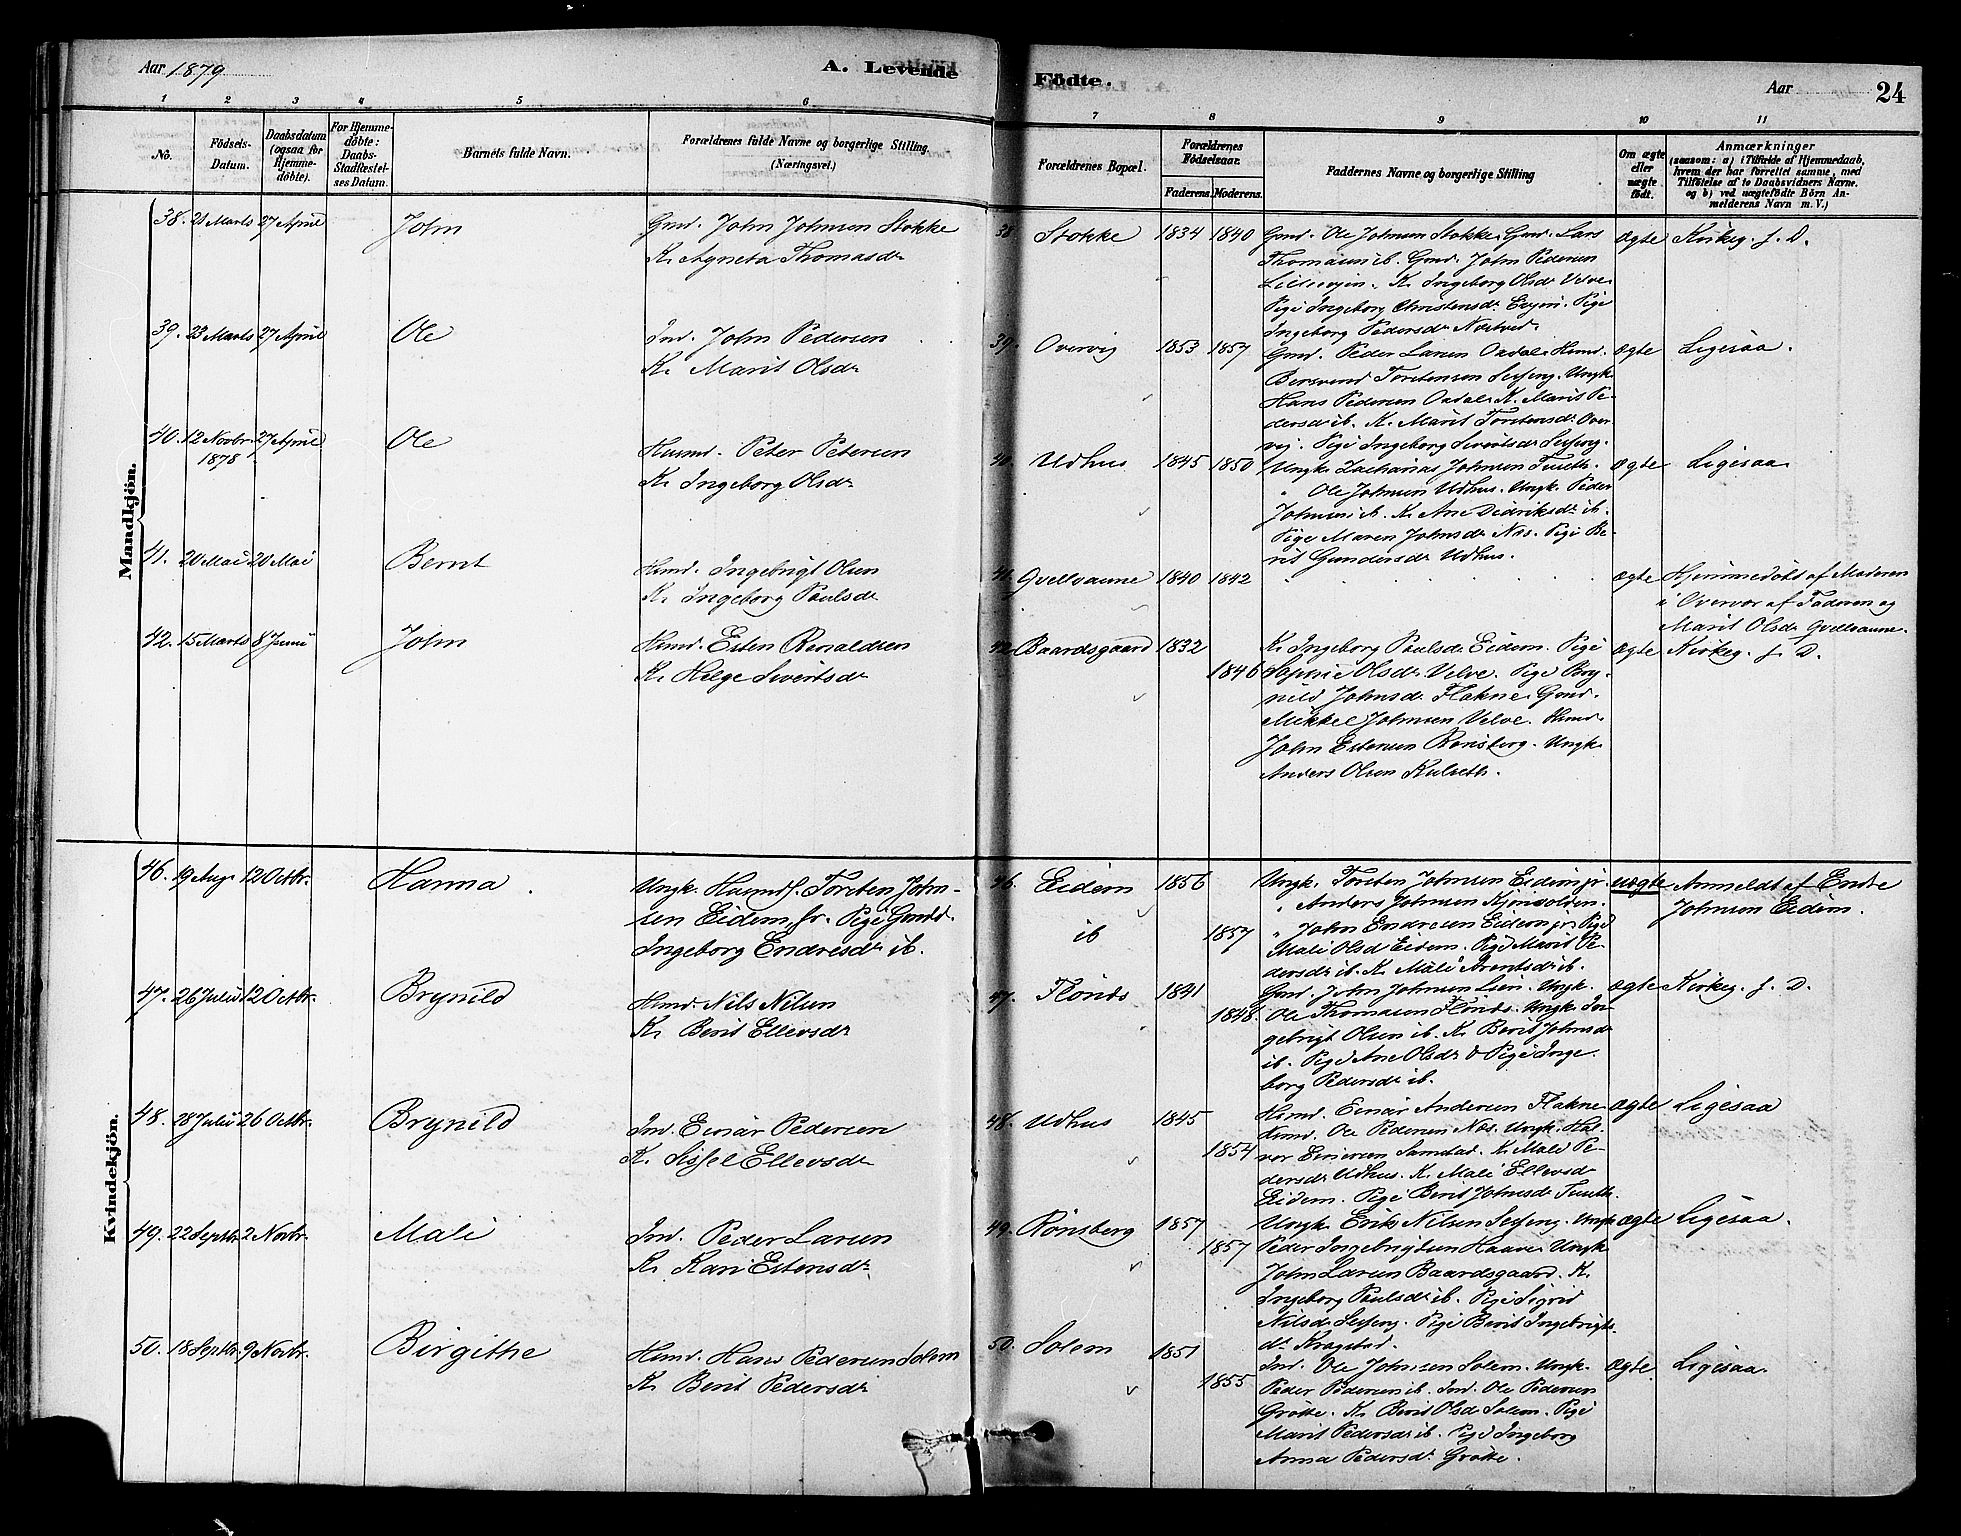 Aar 1879
A. Levende Födte.
Aar
24
1 2 3 4 5 6 7 8 9 10 11
No.
Födsels-Datum.
Daabsdatum (ogsaa for Hjemme-döbte).
For Hjemme-döbte: Daabs-Stadfæstelses Datum.
Barnets fulde Navn.
Forældrenes fulde Navne og borgerlige Stilling. (Næringsvei.)
Forældrenes Bopæl.
Forældrenes Födselsaar.
Faderens. Moderens.
Faddernes Navne og borgerlige Stilling
Om ægte eller uægte födt.
Anmærkninger
(saasom: a) i Tilfælde af Hjemmedaab,
hvem der har forrettet samme, med
Tilföielse af to Daabsvidners Navne.
og b) ved uægtefödt Börn An-
melderens Navn m. V.)
Mandkjön.
38. 21 Marts 27 April John
Gmd. John Johnsen Stokke
K. Agneta Thomasdr
38 Stokke 1834 1840
Gmd. Ole Johnsen Stokke. Gmd. Lars
Thomasen ib. Gmd. John Pedersen
Lilleevjen. K. Ingeborg Olsdr Velve
Pige Ingeborg Christensdr Evjen. Pige
Ingeborg Pedersdr Næstved.
ægte Kirkeg. f. D.
39. 23 Marts 27 April Ole
Ind. John Pedersen
K. Marit Olsdr
39. Overvig 1853 1857
Gmd. Peder Larsen Oxdal. Husmd.
Bersvend Torstensen Selseng. Ungk
Hans Pedersen Oxdal. K. Marit Pe-
dersdr ib. K. Marit Torstensdr Over-
vig. Pige Ingeborg Sivertsdr Selseng.
ægte Ligesaa.
40. 12 Novbr. 1878 27 April Ole
Husmd. Peter Petersen
K. Ingeborg Olsdr
40. Udhus 1845 1850
Ungk. Zacharias Johnsen Tuseth.
" Ole Johnsen Udhus. Ungk. Peder
Johnsen ib. K. Ane Didriksdr ib.
Pige Maren Johnsdr Næs. Pige Be-
rit Gundersdr Udhus.
ægte Ligesaa
41. 20 Mai 20 Mai Bernt
Husmd. Ingebrigt Olsen
K. Ingeborg Paulsdr
41. Qvelloaune 1840 1842
ægte Hjemmedøbt af Moderen
i Overvær af Faderen og
Marit Olsdr Qvelloaune.
42. 15 Marts 8 Juni John
Husmd. Esten Ronaldsen
K. Helge Sivertsdr
42. Baardsgaard 1832 1846
K. Ingeborg Paulsdr Eidem. Pige
Sophie Olsdr Velve. Pige Bry-
nild Johnsdr Flakne. Gmd.
Mikkel Johnsen Velve. Husmd.
John Estensen Rønsberg. Ungk
Anders Olsen Kulseth.
ægte Kirkeg. f. D.
Kvindekjön.
46. 19 Aug. 12 Octbr. Hanna
Ungk. Husmdf. Torsten John-
sen Eidem jr. Pige Gmdd.
Ingeborg Endresdr ib.
46. Eidem ib 1856 1857
Ungk. Torsten Johnsen Eidem jr.
" Anders Johnsen Kjønsvolden.
" John Endresen Eidem jr. Pige
Mali Olsdr Eidem. Pige Marit Pe-
dersdr ib. K. Mali Arntsdr ib.
uægte Anmeldt af Endre
Johnsen Eidem.
47. 26 Juli 12 Octbr. Brynild
Husmd. Nils Nilsen
K. Berit Ellevsdr
47. Flønds 1841 1848.
Gmd. John Johnsen Lien. Ungk.
Ole Thomasen Flønds. Ungk. In-
gebrigt Olsen ib. K. Berit Johnsdr
ib. Pige Ane Olsdr & Pige Inge-
borg Pedersdr ib.
ægte Kirkeg. f. D.
48. 28 Juli 26 Octbr. Brynild
Ind. Einar Pedersen
K. Sissel Ellevsdr
48. Udhus 1845 1854
Husmd. Einar Andersen Flakne
Husmd. Ole Pedersen Næs. Ungk. Hal-
vor Einersen Samstad. K. Mali Pe-
dersdr Udhus. K. Mali Ellevsdr
Eidem. Pige Berit Johnsdr Tuseth.
ægte Ligesaa
49. 22 Septbr. 2 Novbr. Mali
Ind. Peder Larsen
K. Kari Estensdr
49. Rønsberg 1857 1857
Ungk. Erik Nilsen Selseng. Ungk
Peder Ingebrigtsen Haave. Ungk
John Larsen Baardsgaard. K.
Ingeborg Paulsdr ib. Pige Sigrid
Nilsdr Selseng. Pige Berit Ingebrigts-
dr Kragstad.
ægte Ligesaa.
50. 18 Septbr. 9 Novbr. Birgithe
Husmd. Hans Pedersen Solem
K. Berit Pedersdr
50. Solem 1851 1855
Ind. Ole Johnsen Solem. Ungk.
Peder Pedersen ib. Ind. Ole Pedersen
Grøtte. K. Berit Olsdr Solem. Pige
Marit Pedersdr ib. Pige Ingeborg
Anna Pedersdr Grøtte.
ægte Ligesaa.